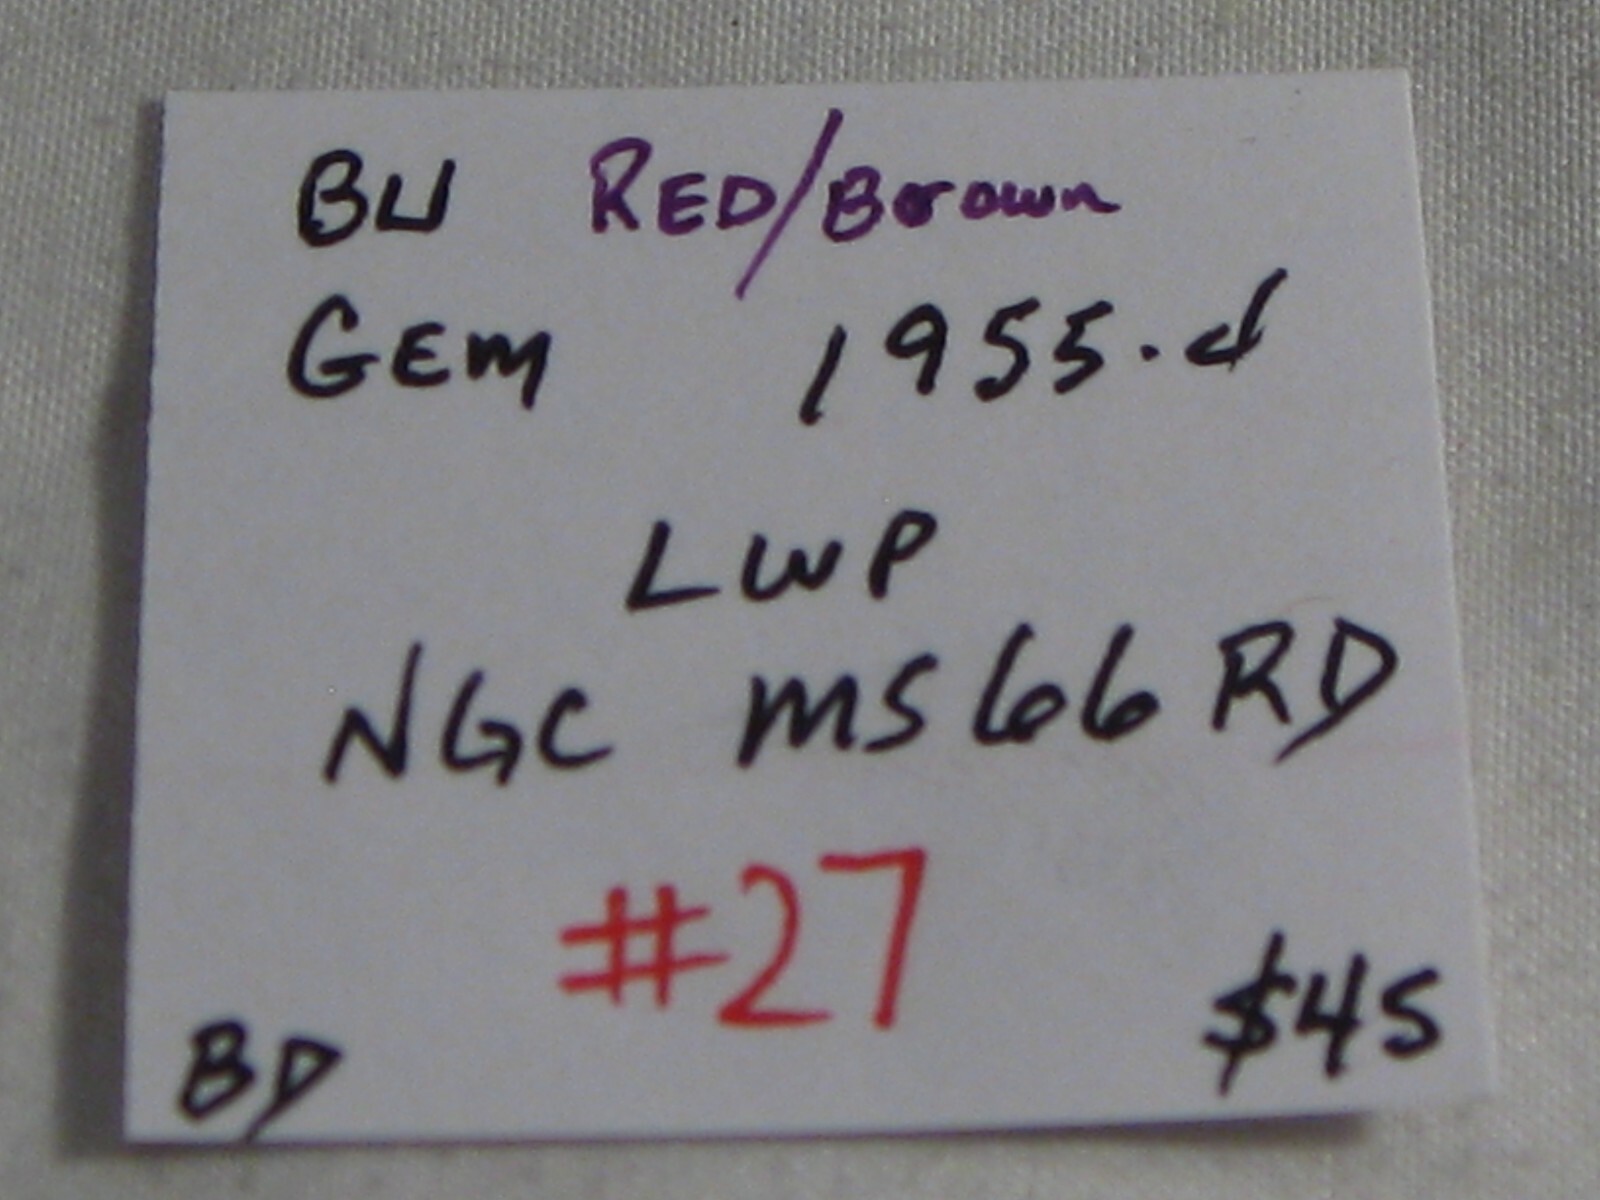 BU RED/Brown
GEM 1955.d
LWP
NGC MS66 RD
#27
BD $45